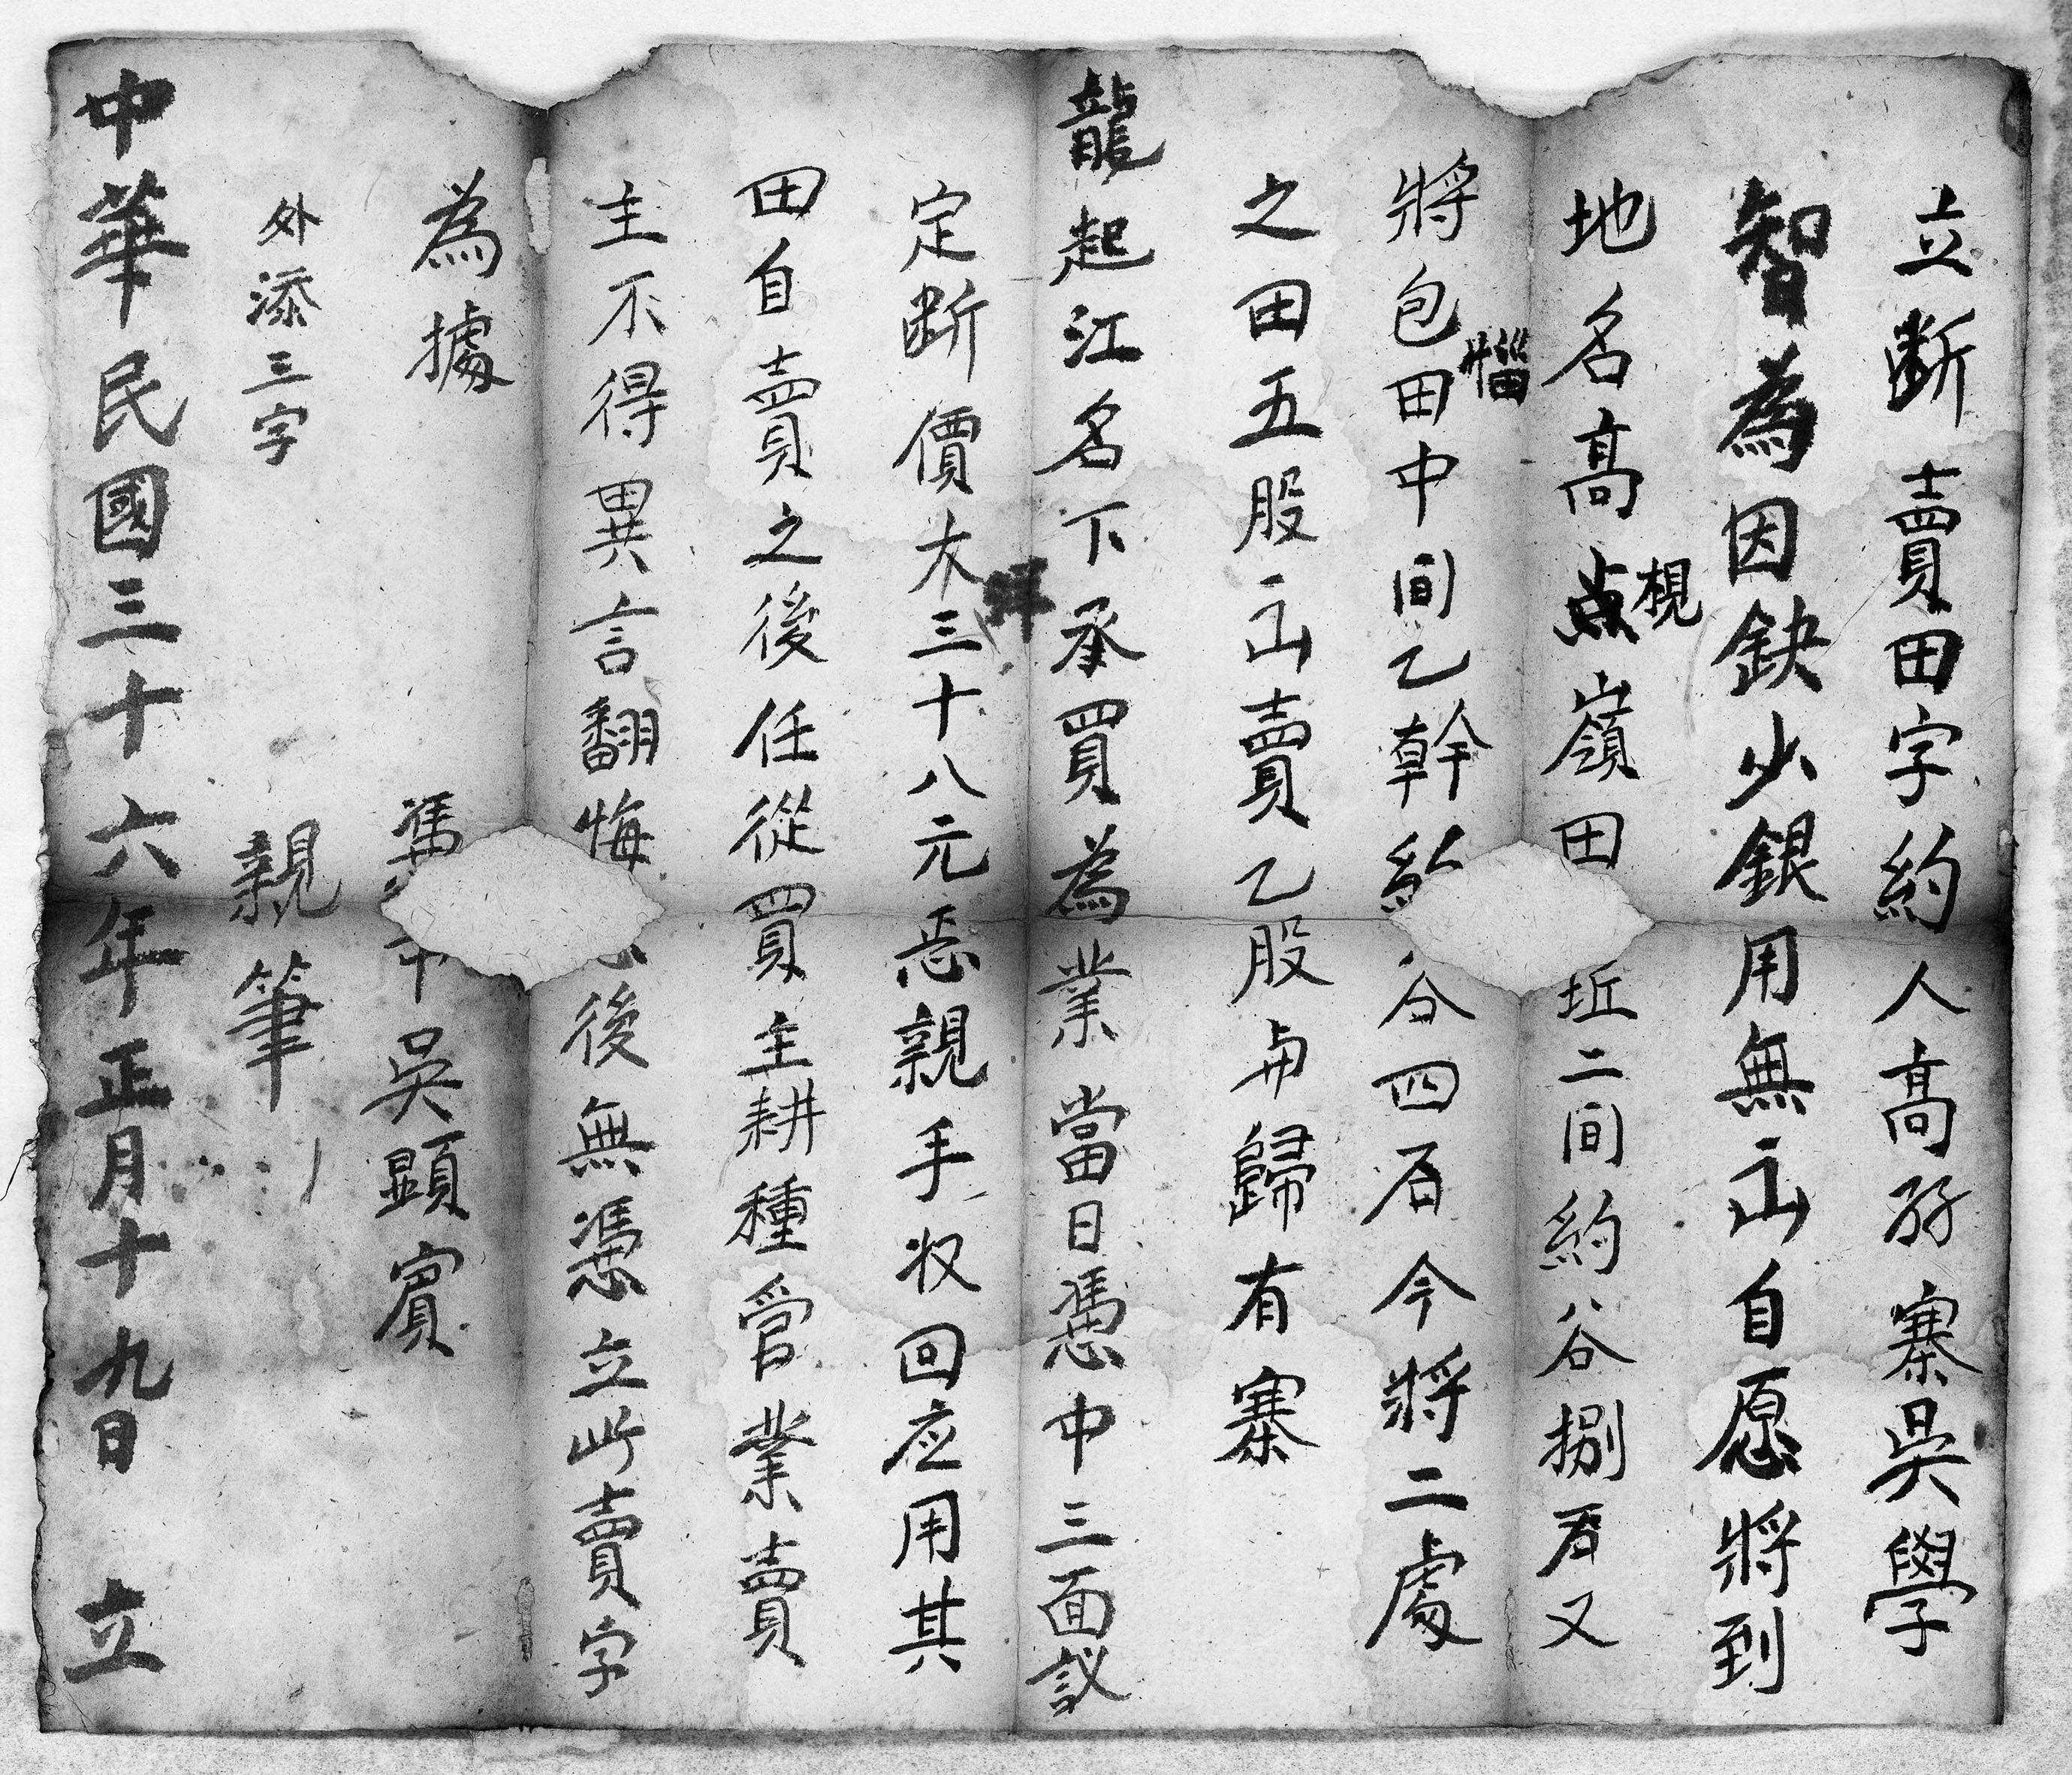 立断賣田字約人高孖寨吳學
智為因缺少銀用無出自愿將到
地名高点梘嶺田坵二间約谷捌石又
將包田㙇中间乙幹約谷四石今將二處
之田五股出賣乙股与歸有寨
龍起江名下承買為業當日憑中三面議
定断價大洋三十八元恁親手收回应用其
田自賣之後任從買主耕種管業賣
主不得異言翻悔後無憑立此賣字
為據
憑中吳顕賓
外添三字
親筆
中華民國三十六年正月十九日立